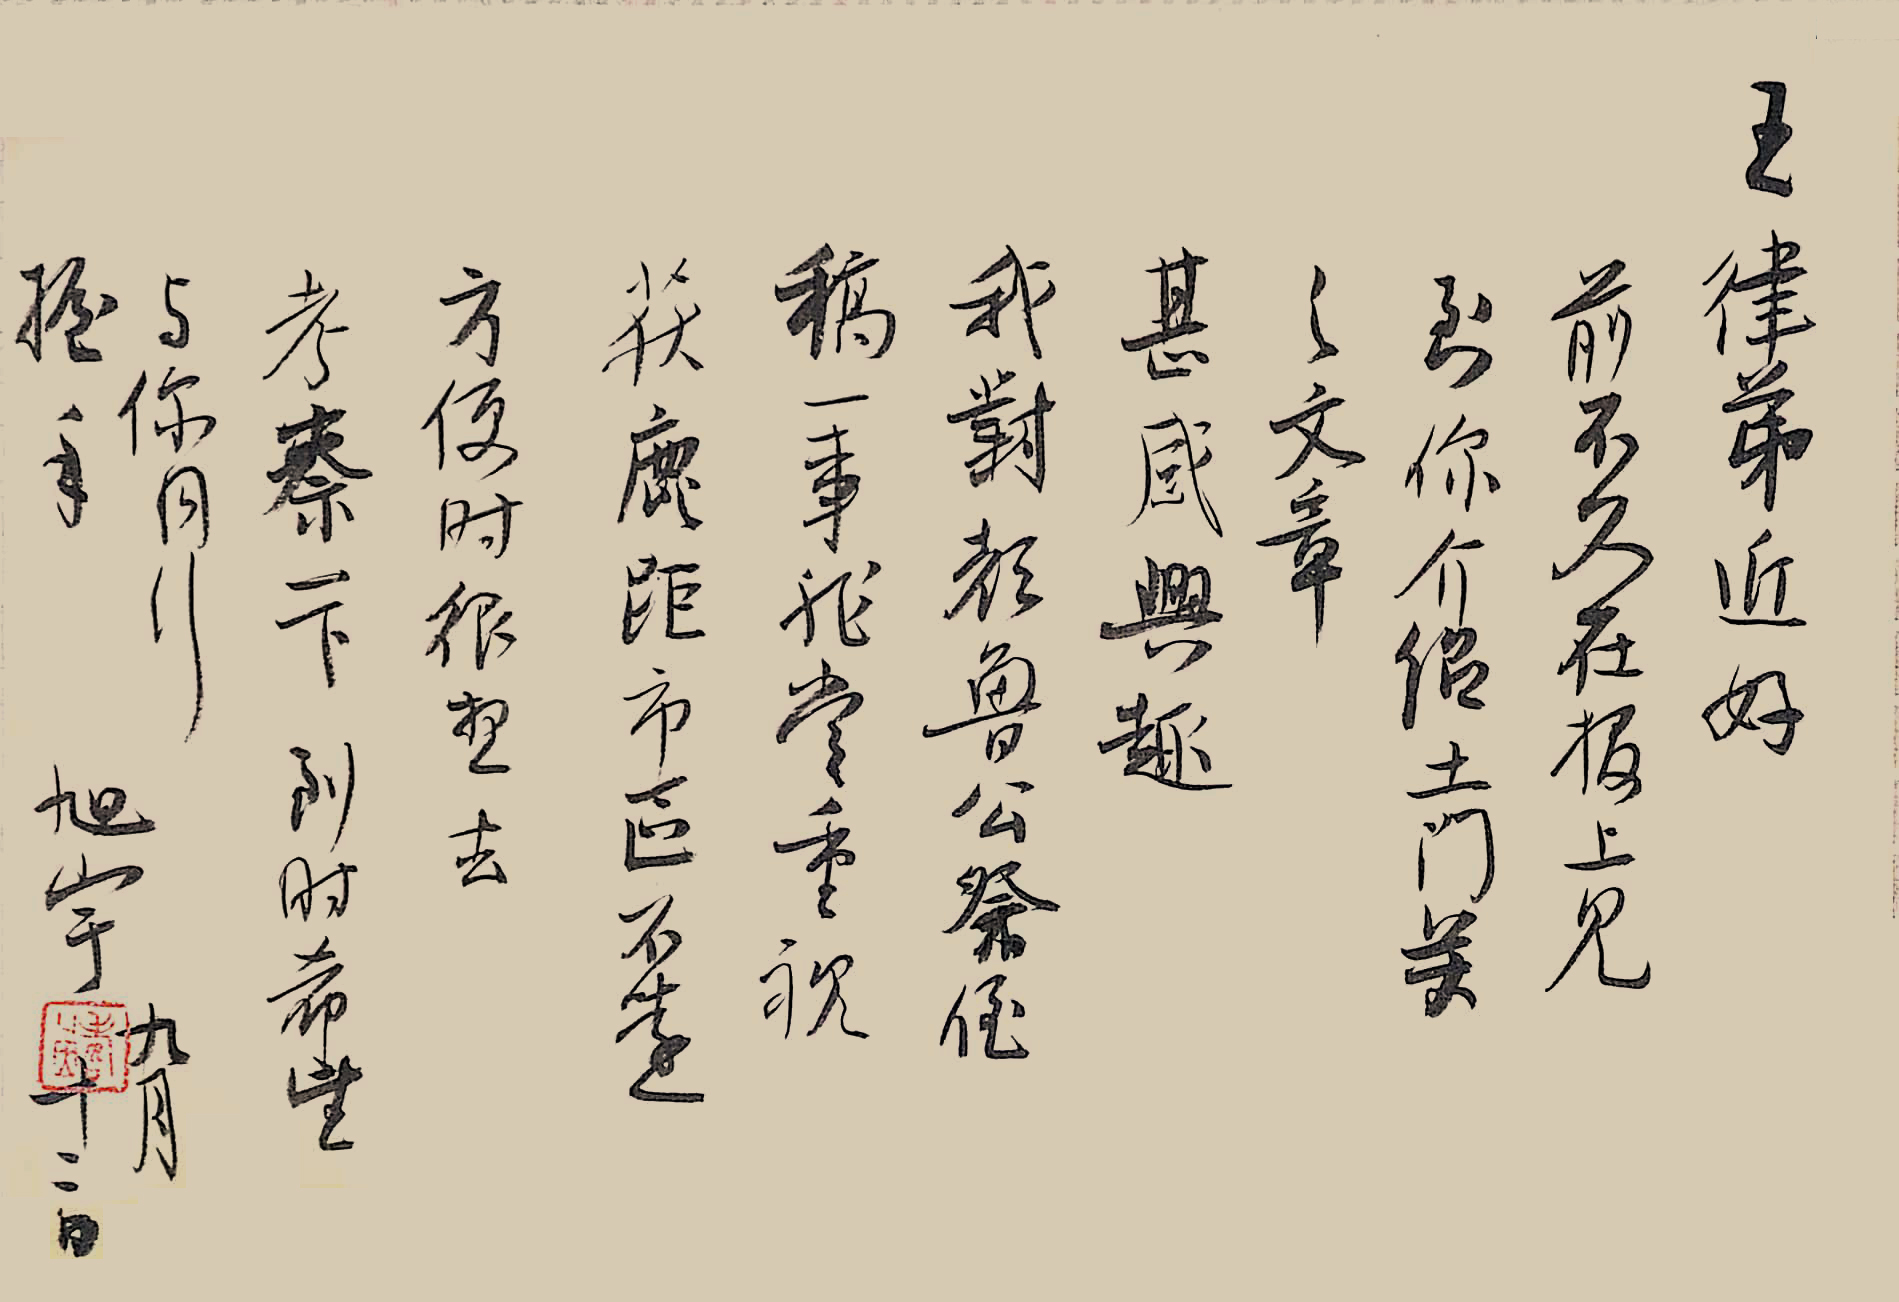 王律弟近好
前不久在报上见
到你介绍土门关
之文章
甚感興趣
我對颜魯公祭侄
稿一事非常重视
获鹿距市区不远
方便时很想去
考察一下 到时希望
与你同行
握手
旭宇
九月
十二日